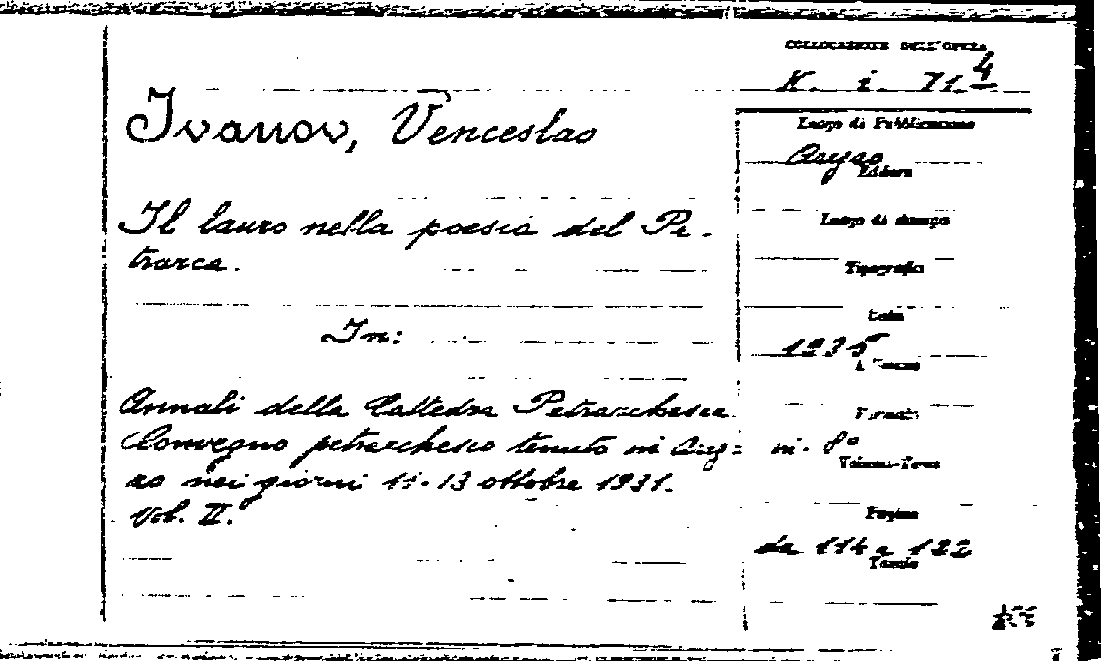 COLLOCAZIONE DELL'OPERA
X. i. 71.4
Ivanov, Venceslao
Luogo di Pubblicazione
Arezzo
Editore
Il lauro nella poesia del Pe-
trarca.
Luogo di stampa
Tipografia
In:
Data
1935
Annali della Cattedra Petrarchesca
Formato
Convegno petrarchesco tenuto in Arez=
in-8°
zo nei giorni 11-13 ottobre 1931.
Vol. II.
Pagine
da 114 a 122
Tavole